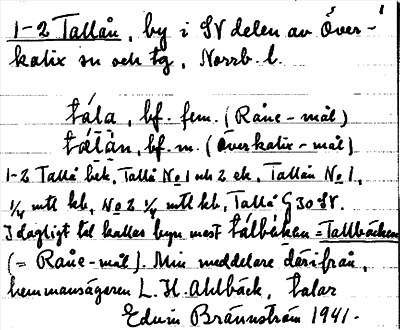 1-2 Tallån, by i SV delen av Över-
kalix sn och tg, Norrb. l.
tála, bf. fem. (Råne-mål)
tätån, bf. m. (Överkalix-mål)
1-2 Tallå bek., Tallå No 1 och 2 ek., Tallån No 1,
1/4 mtl kb, No 2 1/4 mtl kb, Tallå G 30 SV.
I dagligt tal kallas byn mest tálbäken = Tallbäcken
(= Råne-mål). Min meddelare därifrån,
hemmansägaren L. H. Ahlbäck, talar
Edvin Brännström 1941.